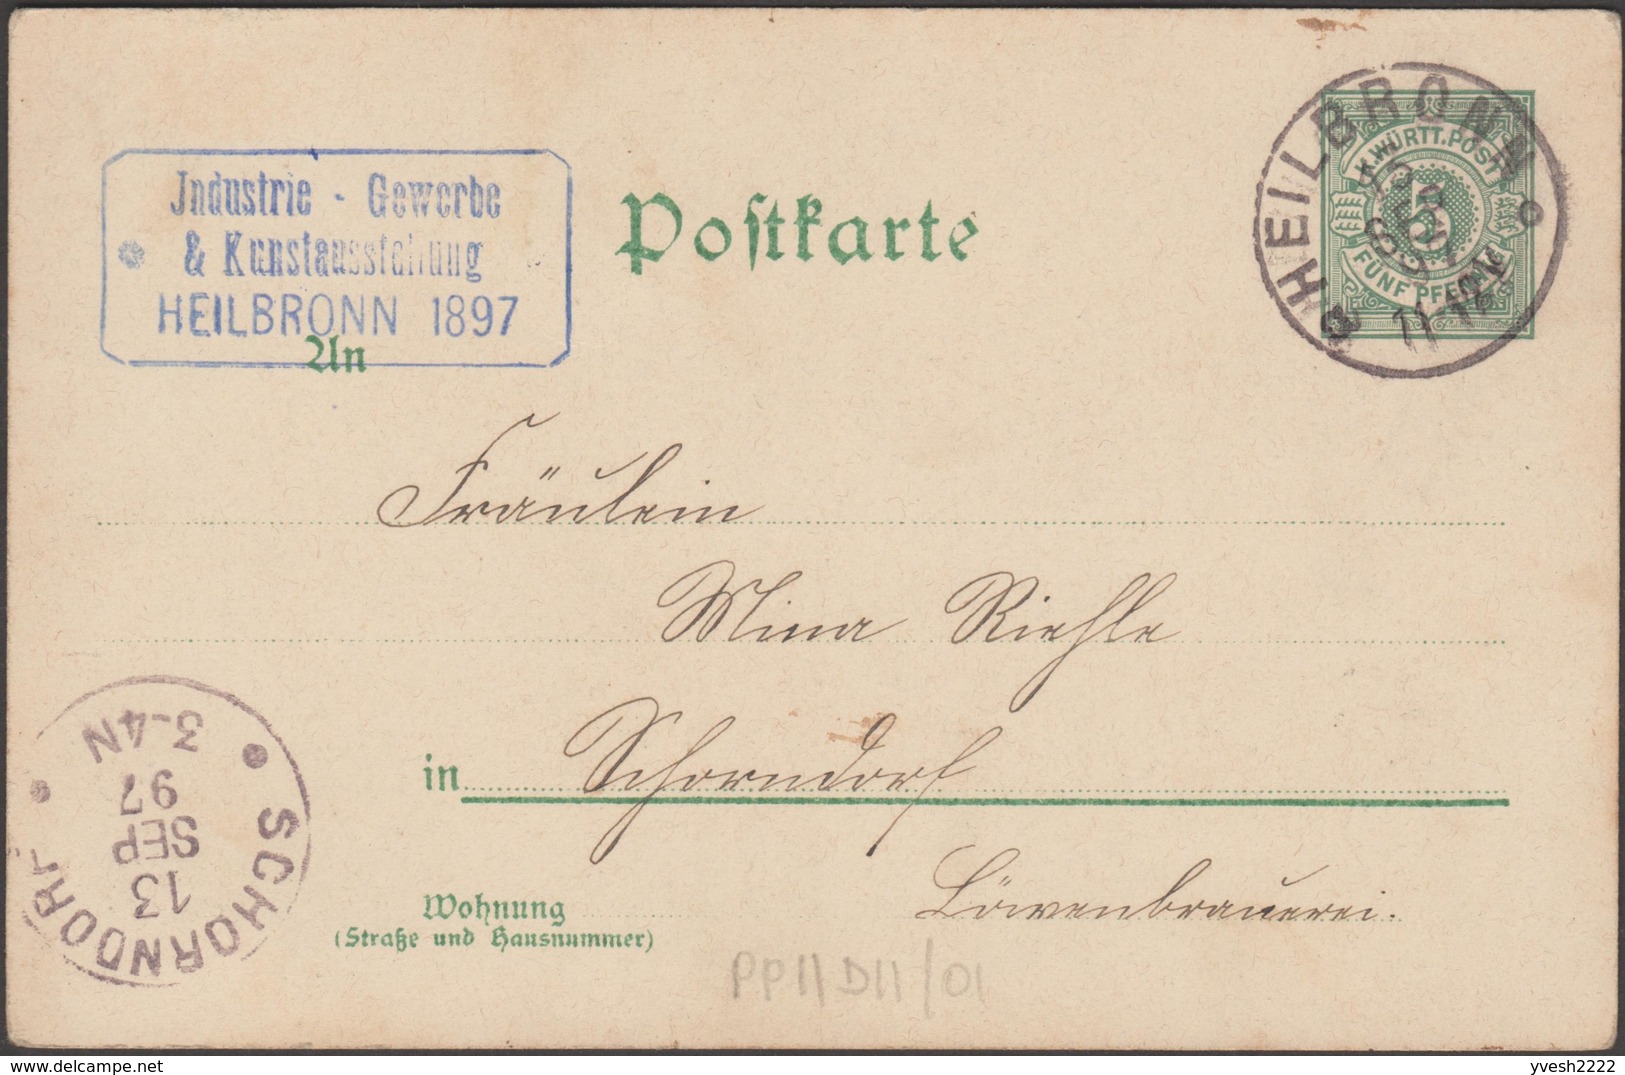 Industrie - Gewerbe
& Kunstausstellung
HEILBRONN 1897
Postkarte
HEILBRONN
K. WÜRTT. POST
5
FÜNF PFENNIG
An
Fräulein
Mina Riehle
in Schorndorf
Löwenbrauerei.
Wohnung
(Straße und Hausnummer)
SCHORNDORF
13
SEP
97
3-4N
PP11D11/01
delcampe.net
yvesh2222